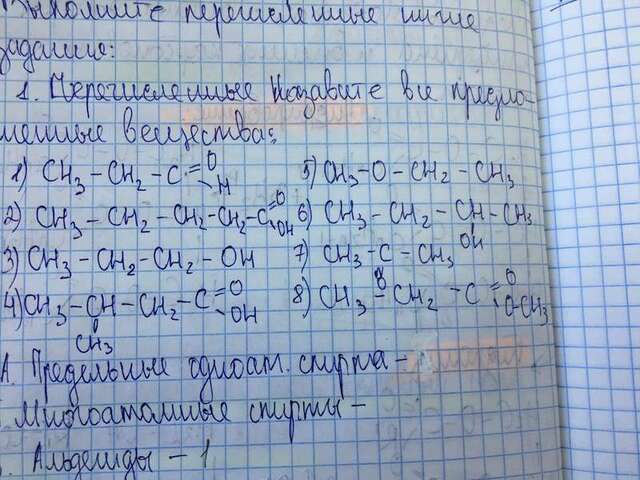 Выполните перечисленные ниже
задание:
1. Перечисленные Назовите все предло-
женные вещества:
1) CH₃ – CH₂ – C =O –H
5) CH₃–O–CH₂–CH₃
2) CH₃ – CH₂ – CH₂ – CH₂ – C =O OH
6) CH₃ – CH₂ – CH – CH₃
OH
3) CH₃ – CH₂ – CH₂ – OH
7) CH₃ – C – CH₃
O
4) CH₃ – CH – CH₂ – C =O OH
CH₃
8) CH₃ – CH₂ – C =O O–CH₃
А. Предельные одноат. спирты –
Многоатомные спирты –
Альдегиды – 1